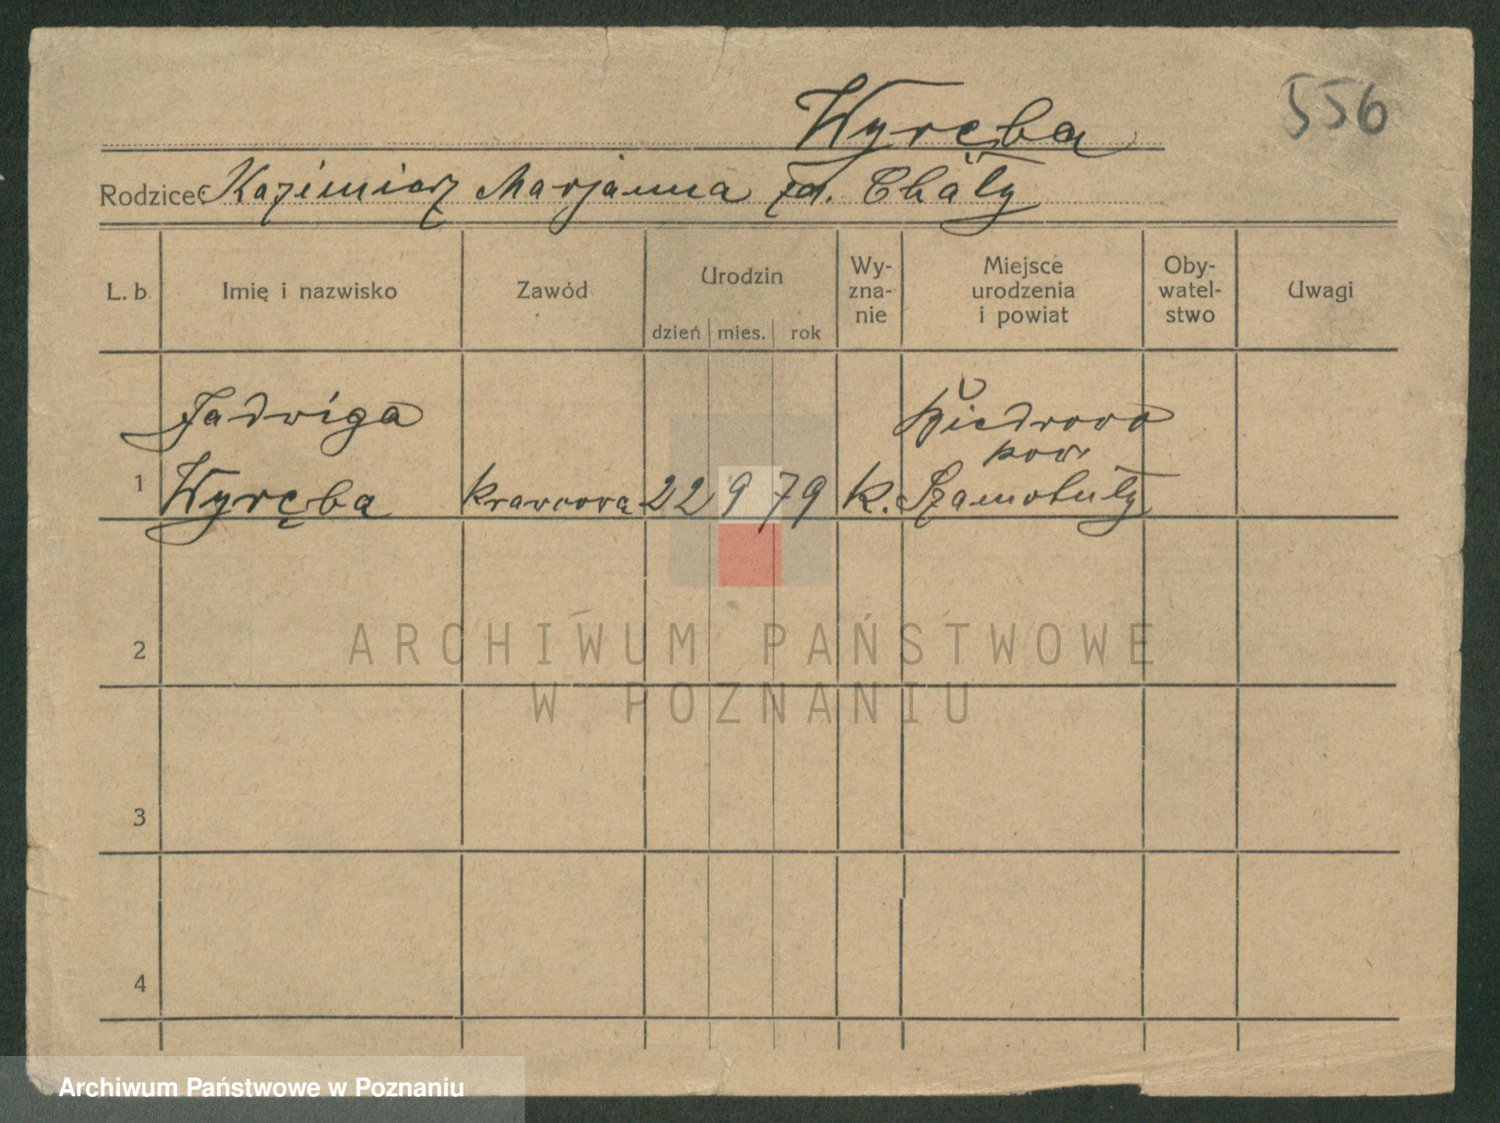 Wyręba
556
Rodzice: Kazimierz Marjanna zd. Chały
L. b. Imię i nazwisko Zawód Urodzin Wy- Miejsce Oby- Uwagi
zna- urodzenia watel-
nie i powiat stwo
dzień mies. rok
Jadwiga
1 Wyręba krawcowa 22 9 79 k. Szamotuły
pow.
2
3
4
ARCHIWUM PAŃSTWOWE
W POZNANIU
Archiwum Państwowe w Poznaniu